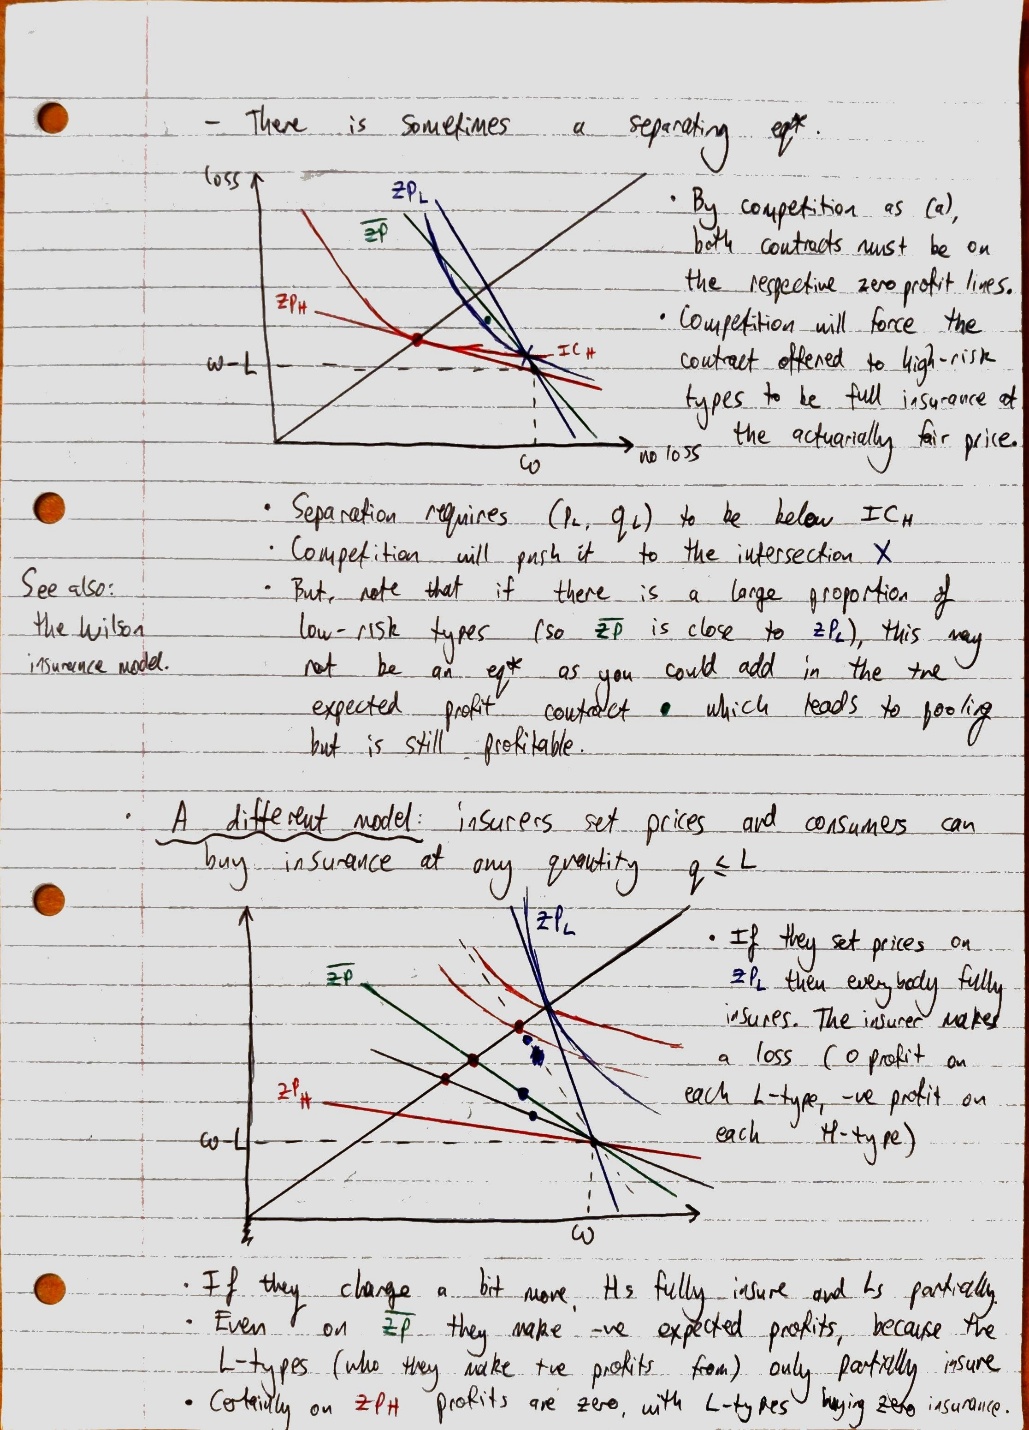 - There is sometimes a separating eq*.
loss
ZP_L
Z̅P̅
ZP_H
IC_H
ω-L
ω
no loss
• By competition as (a),
both contracts must be on
the respective zero profit lines.
• Competition will force the
contract offered to high-risk
types to be full insurance at
the actuarially fair price.
• Separation requires (p_L, q_L) to be below IC_H
• Competition will push it to the intersection X
• But, note that if there is a large proportion of
low-risk types (so Z̅P̅ is close to ZP_L), this may
not be an eq* as you could add in the +ve
expected profit contract • which leads to pooling
but is still profitable.
See also:
the Wilson
insurance model.
• A different model: insurers set prices and consumers can
buy insurance at any quantity q ≤ L
ZP_L
Z̅P̅
ZP_H
ω-L
ω
• If they set prices on
ZP_L then everybody fully
insures. The insurer makes
a loss (0 profit on
each L-type, -ve profit on
each H-type)
• If they charge a bit more, Hs fully insure and Ls partially.
• Even on Z̅P̅ they make -ve expected profits, because the
L-types (who they make +ve profits from) only partially insure
• Certainly on ZP_H profits are zero, with L-types buying zero insurance.